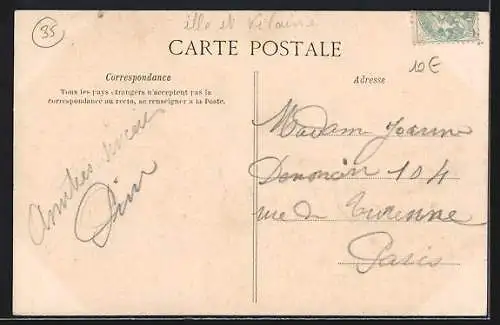 35
ille et Vilaine
CARTE POSTALE
10€
Correspondance
Tous les pays étrangers n'acceptent pas la
correspondance au recto, se renseigner à la Poste.
Amitiés sincères
Adresse
Madam Jeanne
104
rue de Turenne
Paris